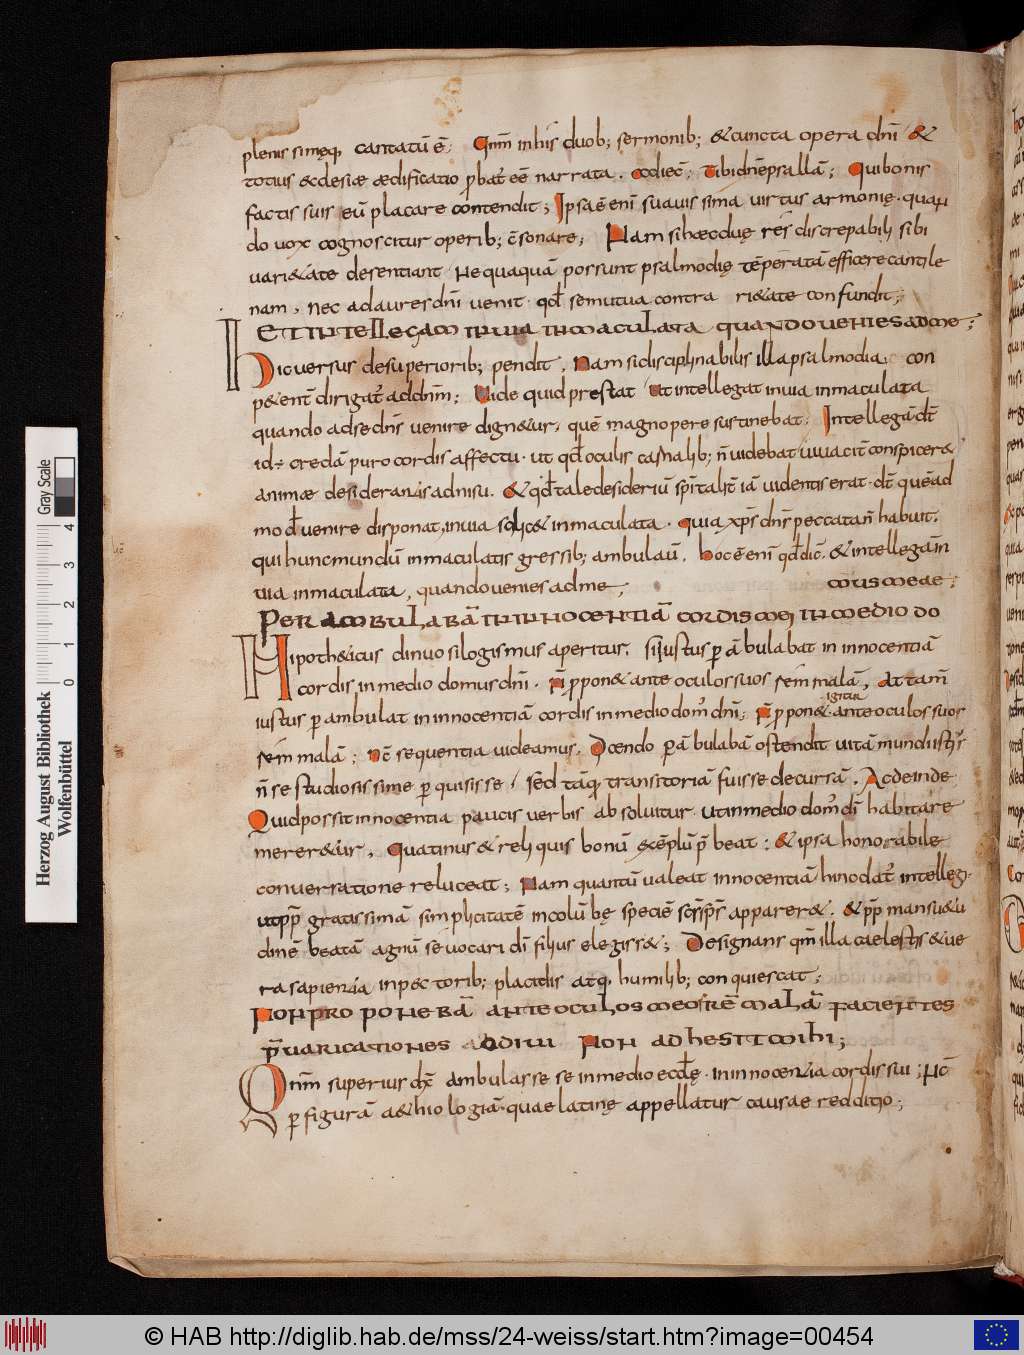 plenissimęq; cantatū ē; Qm̄ in his duob; sermonib; & cuncta opera dn̄i &
totius ecclesiae aedificatio ꝓbat̄ eē narrata. Tibi dn̄e psallā; Qui bonis
factis suis eū placare contendit; Ipsa ē enī suauissima uirtus armonię. quan
do uox cognoscitur operib; c̄sonare; Nam si haec duę res discrepabili sibi
uari&ate desentiant nequaquā possunt psalmodię tēperatā efficere cantile
nam, nec ad aures dn̄i uenit. qđ se mutua contra ri&ate confundit;
ET INTELLEGAM IN UIA INMACULATA QUANDO UENIES AD ME;
Hic uersus de superiorib; pendit, Nam si disciplinabilis illa psalmodia con
p&ent̄ dirigat̄ ad dn̄m; Uide quid prestat Ut intellegat in uia inmaculata
quando ad se dn̄s uenire dign&ur, quē magnopere sustinebat; Intellegā dt̄
id÷ credā puro cordis affectu. ut qđ oculis carnalib; n̄ uidebat uiuacit̄ conspicer&
animae desiderantis adnisu. & qđ tale desideriū spīrtalit̄ iā uidentis erat. dt̄ quēad
mođ uenire disponat, in uia & inmaculata. quia xp̄s dn̄s peccata n̄ habuit,
qui hunc mundū inmaculatis gressib; ambulauit. hoc ē enī qđ dic̄. & intellegā in
uia inmaculata, quando uenies ad me; MUS MEAE;
PERAMBULABĀ IN INNOCENTIĀ CORDIS MEI IN MEDIO DO
Hipoth&icus dinuo silogismus aperitur. si iustus ꝑābulabat in innocentiā
cordis in medio domus dn̄i. N̄ ꝓpon& ante oculos suos rem malā, Attam̄
iustus ꝑambulat in innocentiā cordis in medio dom̄ dn̄i; N̄ ꝓpon& igitur ante oculos suos
rem malā; Nc̄ sequentia uideamus. Dicendo ꝑābulabā ostendit uitā mundi istius
n̄ se studiosissime ꝑquisisse, sed tāq; transitoriā fuisse decursā. Ac deinde
Quid possit innocentia paucis uerbis absoluitur. ut in medio dom̄ dī habitare
merer&ur, Quatinus & reliquis bonū exēplū p̄beat: & ipsa honorabile
conuersatione reluceat; Nam quantū ualeat innocentiā hinc dat̄ intellegi.
ut ꝓp̄ gratissimā simplicitatē in colūbę speciē sc̄s sp̄s apparer&. & ꝓp̄ mansu&u
dinē beatā agnū se uocari dī filius elegiss&; Designans qm̄ illa caelestis & ue
ra sapientia in pectorib; placidis atq; humilib; conquiescat;
NON PROPONEBĀ ANTE OCULOS MEOS REM MALĀ FACIENTES
P̄UARICATIONES ODIUI NON ADHESIT MIHI;
Qm̄ superius dx̄ ambulasse se in medio eccłę. in innocentia cordis sui; Nc̄
ꝑ figurā a&hiologiā. quae latine appellatur causae redditio;
Herzog August Bibliothek
Wolfenbüttel
0 1 2 3 4
Gray Scale
© HAB http://diglib.hab.de/mss/24-weiss/start.htm?image=00454